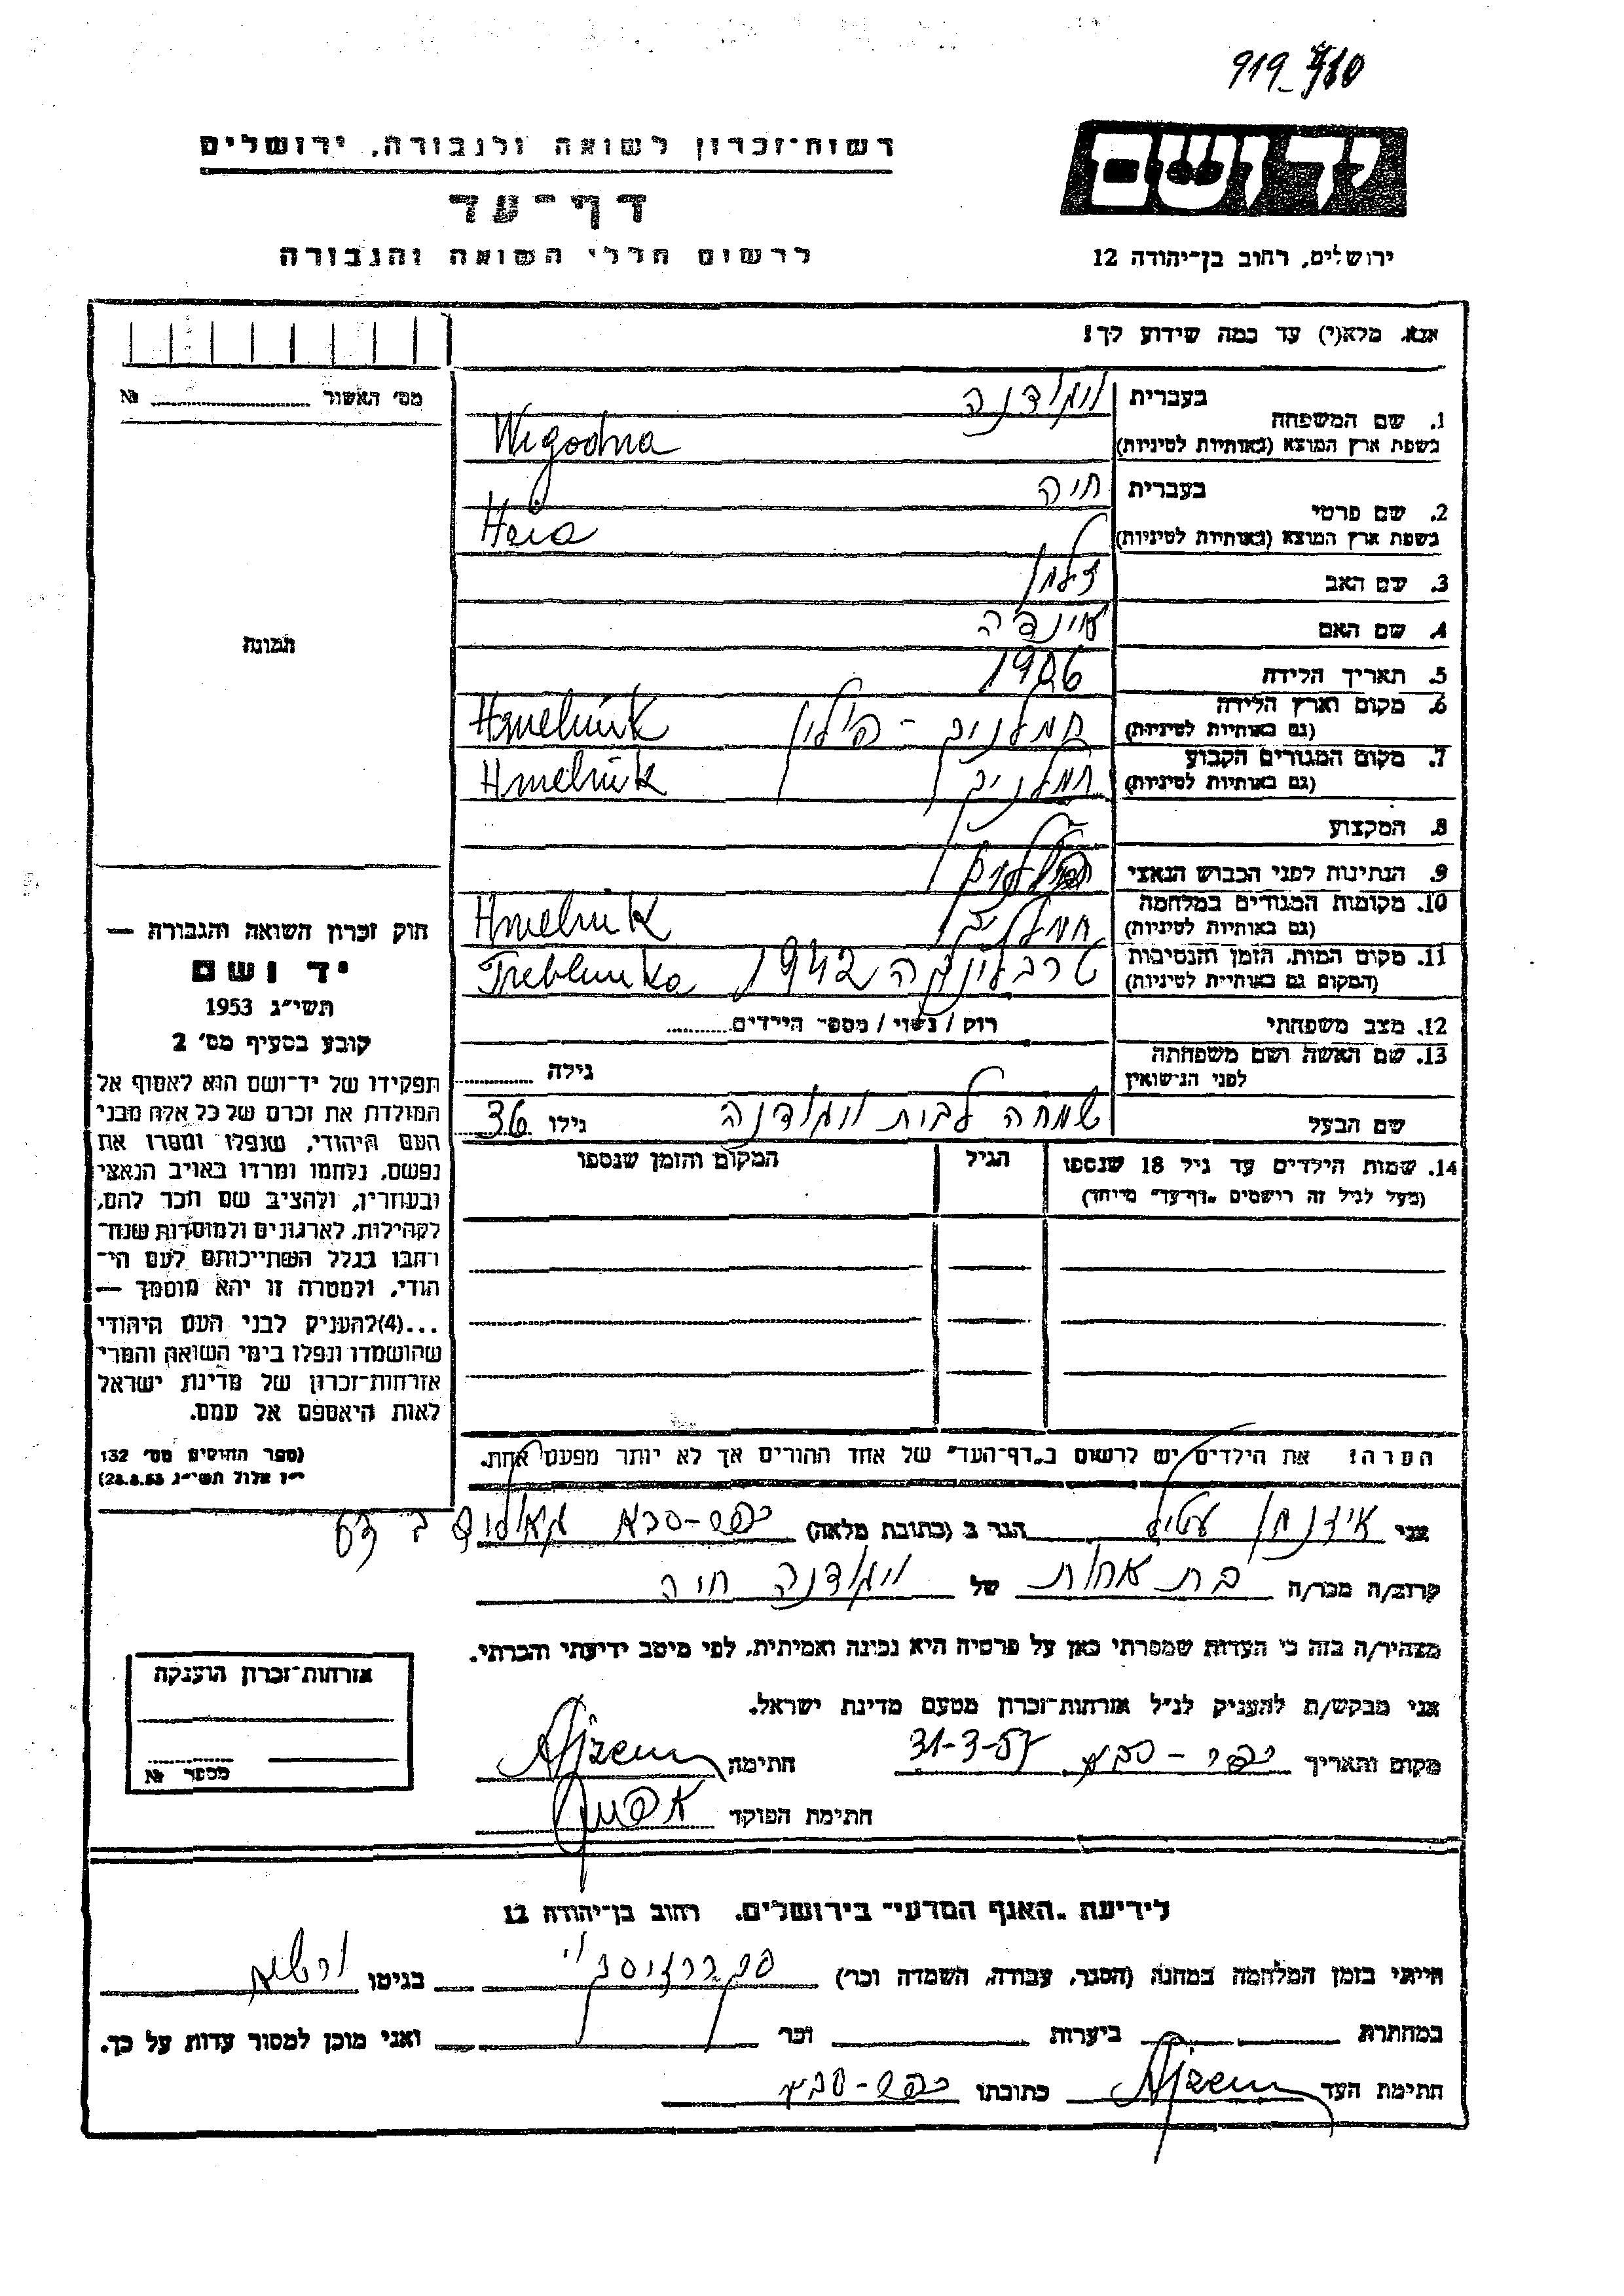 919
רשות־זכרון לשואה ולגבורה, ירושלים
יד ושם
דף־עד
לרשום חללי השואה והגבורה
ירושלים, רחוב בן־יהודה 12
אנא, מלא(י) עד כמה שידוע לך!
מס' האשור № ........
1. שם המשפחה
בעברית ויגודנה
בשפת ארץ המוצא (באותיות לטיניות) Wigodna
2. שם פרטי
בעברית חיה
בשפת ארץ המוצא (באותיות לטיניות) Heia
3. שם האב זלמן
4. שם האם
תמונה
5. תאריך הלידה 1906
6. מקום וארץ הלידה חמלניק - פולין Hmelnik
(גם באותיות לטיניות)
7. מקום המגורים הקבוע חמלניק Hmelnik
(גם באותיות לטיניות)
8. המקצוע
9. הנתינות לפני הכבוש הנאצי
10. מקומות המגורים במלחמה חמלניק Hmelnik
(גם באותיות לטיניות)
11. מקום המות, הזמן והנסיבות טרבלינקה 1942 Treblinka
(המקום גם באותיות לטיניות)
12. מצב משפחתי רוק / נשוי / מספר הילדים........
13. שם האשה ושם משפחתה
לפני הנישואין
גילה ........
שם הבעל שמחה לבית ויגודנה גילו 36
14. שמות הילדים עד גיל 18 שנספו הגיל המקום והזמן שנספו
(מעל לגיל זה רישמים "דף־עד" מיוחד)
חוק זכרון השואה והגבורה —
יד ושם
תשי"ג 1953
קובע בסעיף מס' 2
תפקידו של יד־ושם הוא לאסוף אל
המולדת את זכרם של כל אלה מבני
העם היהודי, שנפלו ומסרו את
נפשם, נלחמו ומרדו באויב הנאצי
ובעוזריו, ולהציב שם וזכר להם,
לקהילות, לארגונים ולמוסדות שנח־
רבו בגלל השתייכותם לעם הי־
הודי, ולמטרה זו יהא מוסמך —
...(4)להעניק לבני העם היהודי
שהושמדו ונפלו בימי השואה והמרי
אזרחות־זכרון של מדינת ישראל
לאות היאספם אל עמם.
(ספר החוקים מס' 132
י"ז אלול תשי"ג 28.8.53)
הערה! את הילדים יש לרשום ב"דף־העד" של אחד ההורים אך לא יותר מפעם אחת.
אני איזנמן הגר ב (כתובת מלאה) כפר-סבא
קרוב/ה מכר/ה בת אחות של ויגודנה חיה
מצהיר/ה בזה כי העדות שמסרתי כאן על פרטיה היא נכונה ואמיתית, לפי מיטב ידיעתי והכרתי.
אני מבקש/ת להעניק לנ"ל אזרחות־זכרון מטעם מדינת ישראל.
מקום ותאריך כפר-סבא 31-3-57 חתימה
חתימת הפוקד
אזרחות־זכרון הוענקה
מספר №
לידיעת "האגף המדעי" בירושלים, רחוב בן־יהודה 12
הייתי בזמן המלחמה במחנה (הסגר, עבודה, השמדה וכו') בגיטו
במחתרת ביערות וכו' ואני מוכן למסור עדות על כך.
חתימת העד כתובתו כפר-סבא